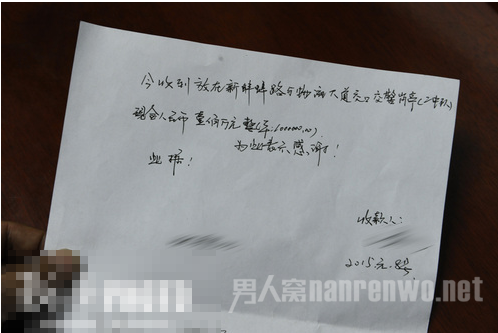 今收到放在新蚌埠路与物流大道交口交警岗亭(二中队)
现金人民币壹佰万元整(¥:1000000.00)
为此表示感谢!
此据!
收款人:
2015元.8号
男人窝nanrenwo.net